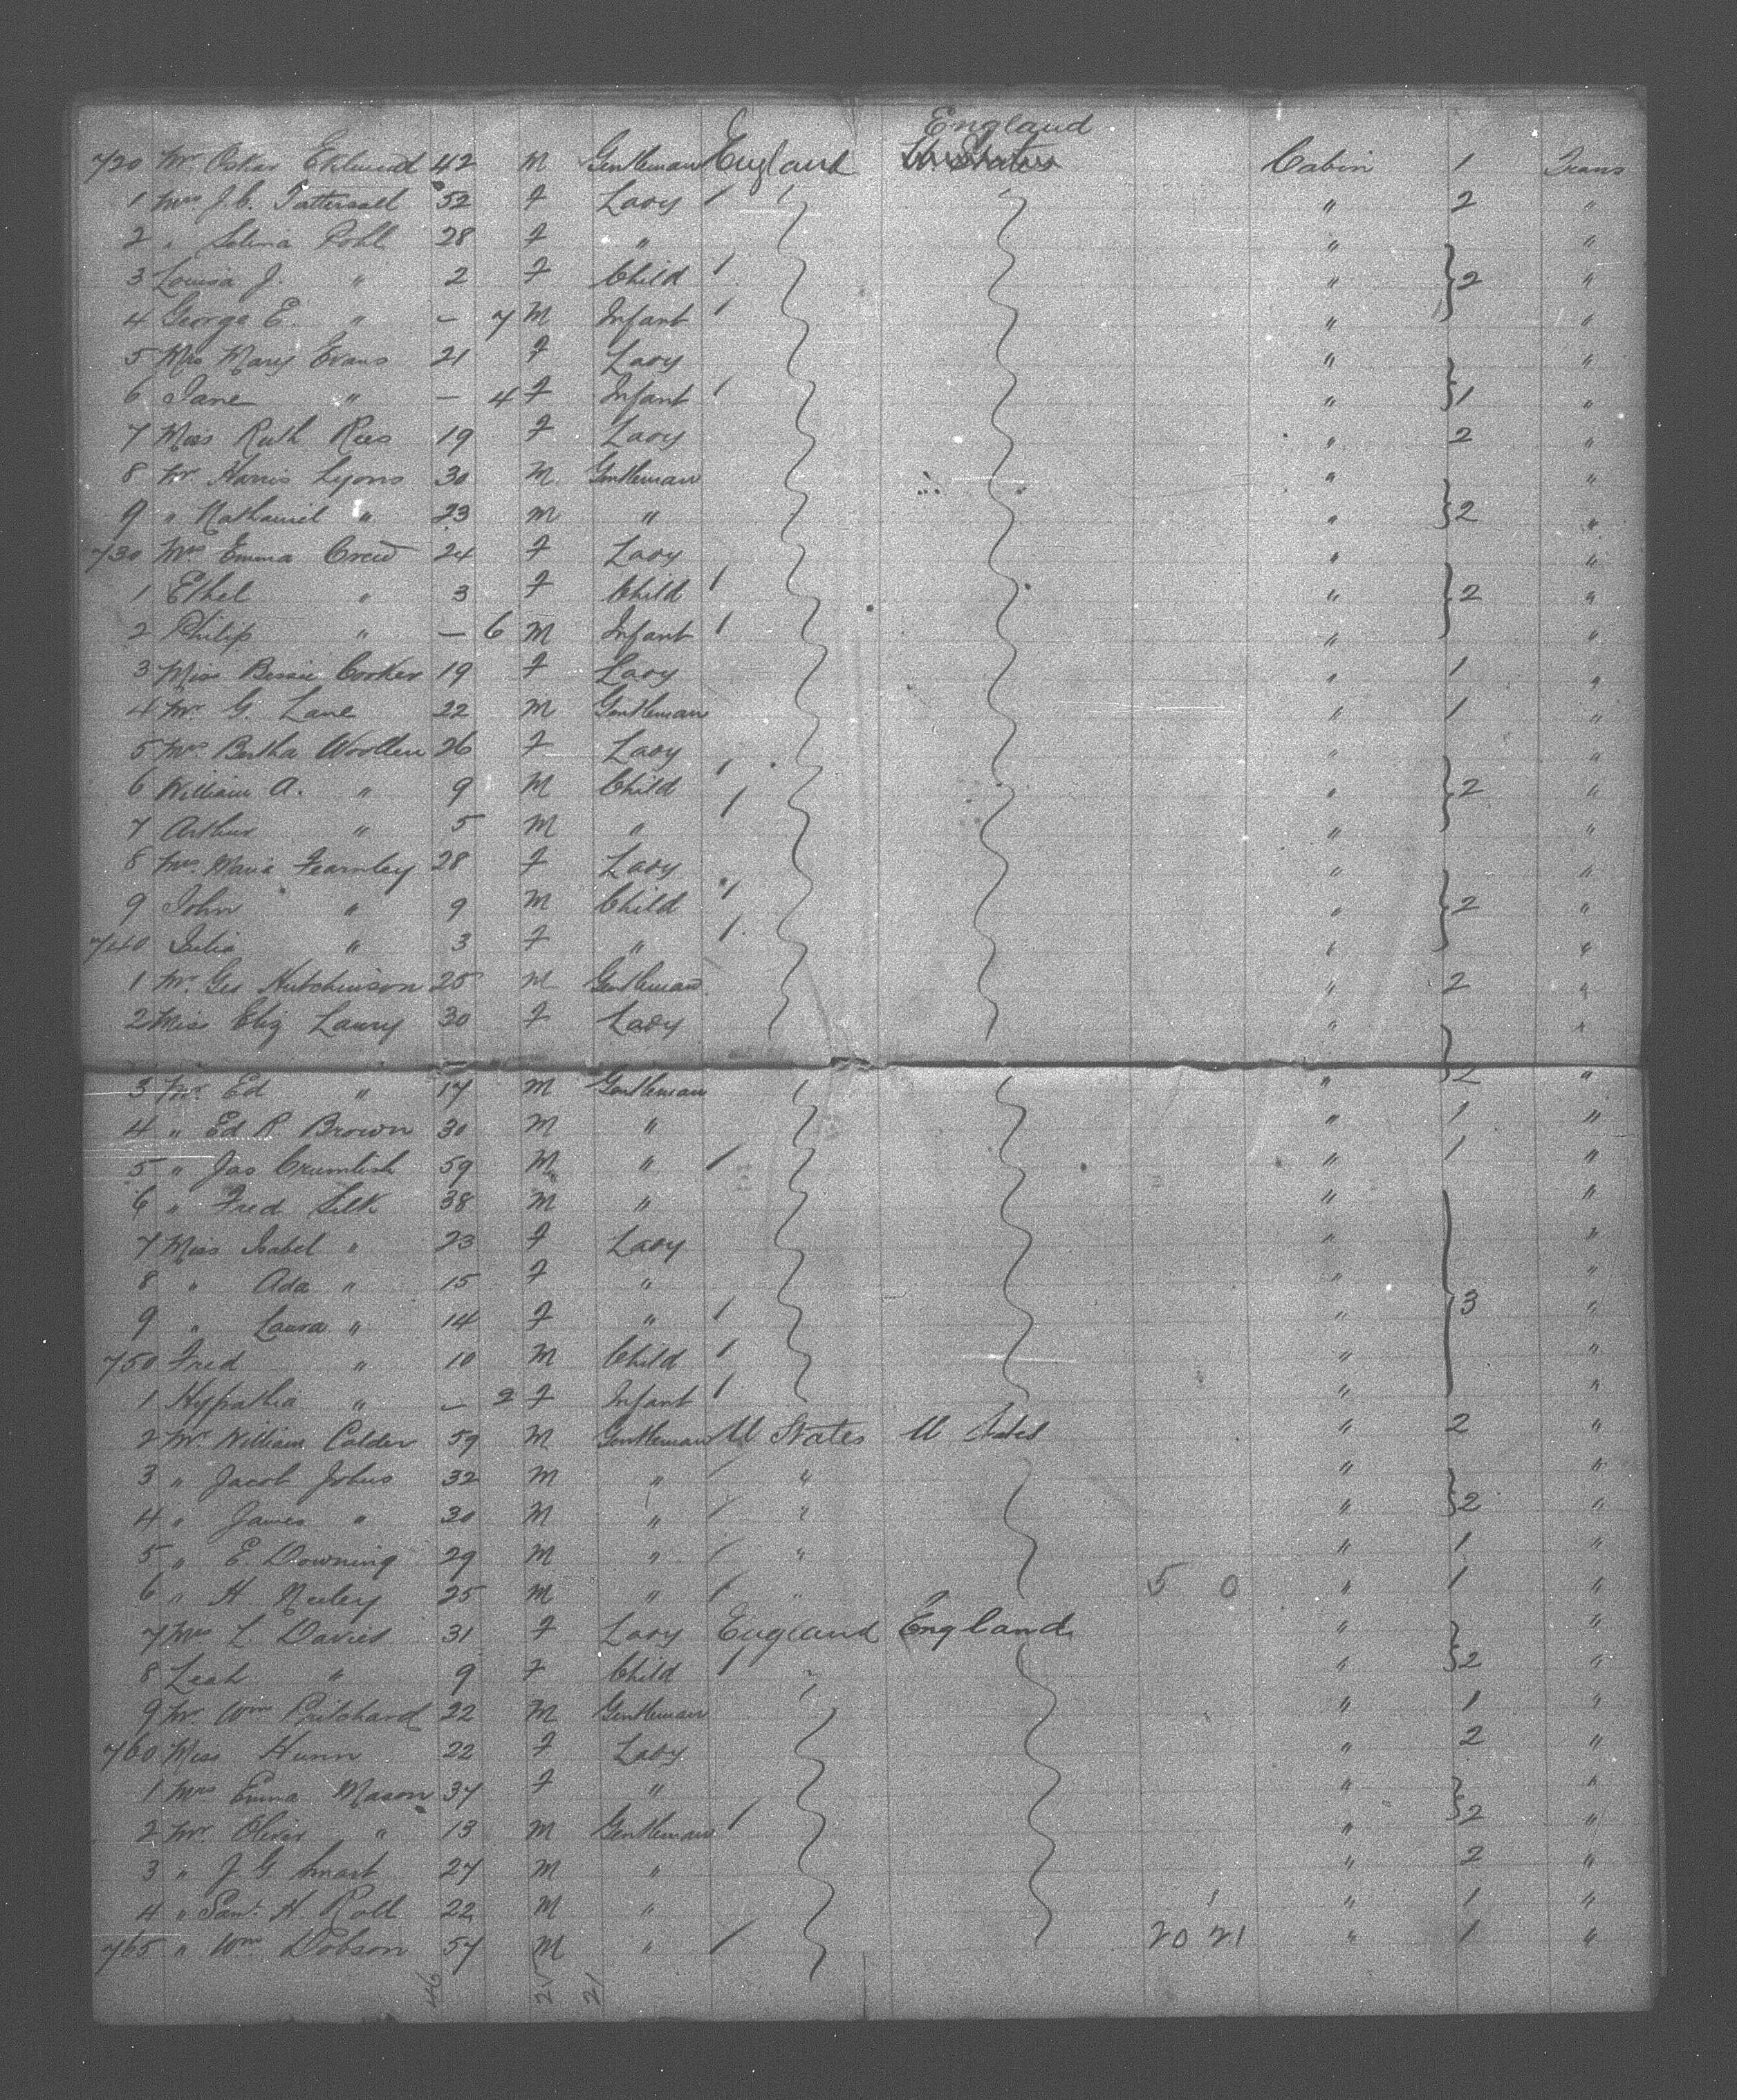 England
720 Mr Oskar Eklund 42 M Gentleman England U. States Cabin 1 Trans
1 Mrs J.C. Tattersall 52 F Lady " 2 "
2 " Selina Pohl 28 F " " "
3 Louisa J. " 2 F Child " 2 "
4 George E. " – 7 M Infant " "
5 Mrs Mary Evans 21 F Lady " "
6 Jane " – 4 F Infant " 1 "
7 Miss Ruth Rees 19 F Lady " 2 "
8 Mr Harris Lyons 30 M Gentleman " "
9 " Nathaniel " 23 M " " 2 "
730 Mrs Emma Creed 24 F Lady " "
1 Ethel " 3 F Child " 2 "
2 Philip " – 6 M Infant " "
3 Miss Bessie Corker 19 F Lady " 1 "
4 Mr G. Lane 22 M Gentleman " 1 "
5 Mrs Bertha Woollen 26 F Lady " "
6 William A. " 9 M Child " 2 "
7 Arthur " 5 M " " "
8 Mrs. Maria Fearnley 28 F Lady " "
9 John " 9 M Child " 2 "
740 Julia " 3 F " " "
1 Mr. Geo Hutchinson 25 M Gentleman " 2 "
2 Miss Eliz Laury 30 F Lady " "
3 Mr. Ed " 17 M Gentleman " 2 "
4 " Ed R. Brown 30 M " " 1 "
5 " Jas Crumlish 59 M " " 1 "
6 " Fred Silk 38 M " " "
7 Miss Isabel " 23 F Lady " "
8 " Ada " 15 F " " "
9 " Laura " 14 F " " 3 "
750 Fred " 10 M Child " "
1 Hypathia " – 2 F Infant " "
2 Mr. William Calder 59 M Gentleman U States U States " 2 "
3 " Jacob Johns 32 M " " " "
4 " James " 30 M " " " 2 "
5 " E. Downing 29 M " " " 1 "
6 " H. Neeley 25 M " " 5 0 " 1 "
7 Mrs L. Davies 31 F Lady England England " "
8 Leah " 9 F Child " " 2 "
9 Mr. Wm Pritchard 22 M Gentleman " 1 "
760 Miss Hunn 22 F Lady " 2 "
1 Mrs Emma Mason 37 F " " "
2 Mr. Oliver " 13 M Gentleman " 2 "
3 " J. G. Smart 27 M " " 2 "
4 " Saml. H. Roll 22 M " " 1 "
765 " Wm Dobson 57 M " 20 21 " 1 "
46 25 21